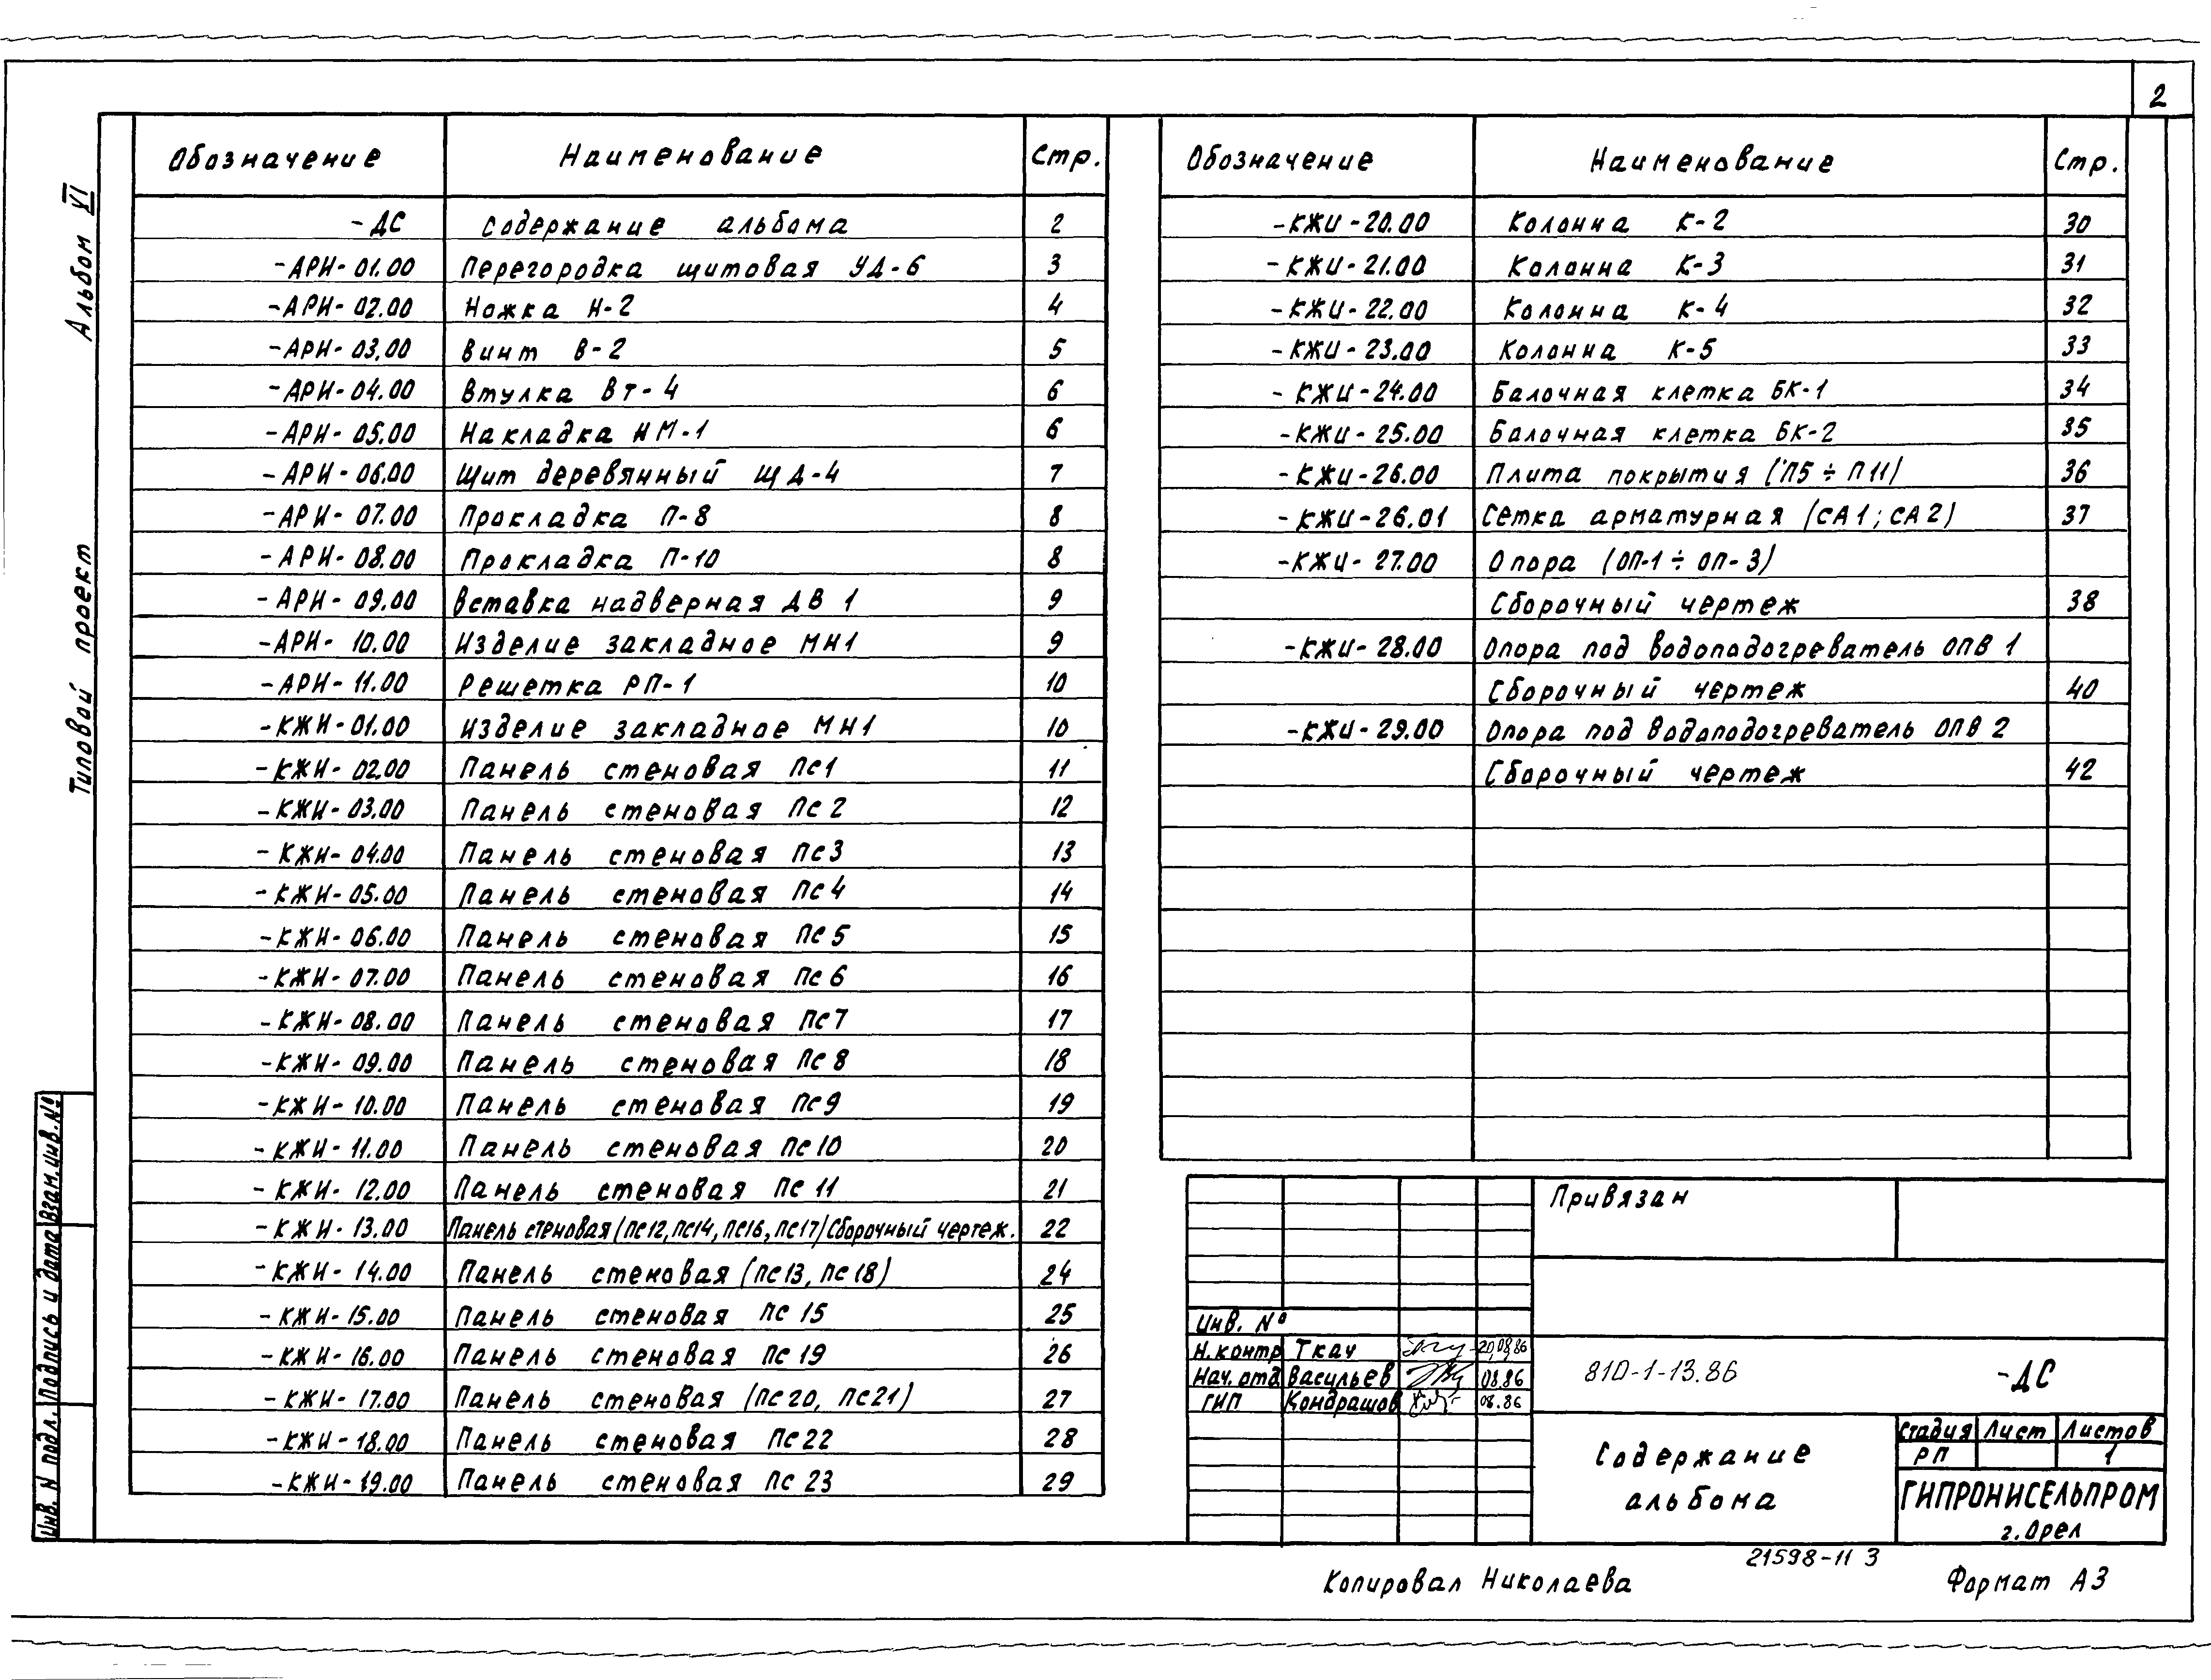 2
Альбом VI
Типовой проект
Обозначение Наименование Стр.
-ДС Содержание альбома 2
-АРИ-01.00 Перегородка щитовая УД-6 3
-АРИ-02.00 Ножка Н-2 4
-АРИ-03.00 Винт В-2 5
-АРИ-04.00 Втулка ВТ-4 6
-АРИ-05.00 Накладка НМ-1 6
-АРИ-06.00 Щит деревянный ЩД-4 7
-АРИ-07.00 Прокладка П-8 8
-АРИ-08.00 Прокладка П-10 8
-АРИ-09.00 Вставка надверная ДВ 1 9
-АРИ-10.00 Изделие закладное МН1 9
-АРИ-11.00 Решетка РП-1 10
-КЖИ-01.00 Изделие закладное МН1 10
-КЖИ-02.00 Панель стеновая ПС1 11
-КЖИ-03.00 Панель стеновая ПС 2 12
-КЖИ-04.00 Панель стеновая ПС3 13
-КЖИ-05.00 Панель стеновая ПС4 14
-КЖИ-06.00 Панель стеновая ПС 5 15
-КЖИ-07.00 Панель стеновая ПС 6 16
-КЖИ-08.00 Панель стеновая ПС7 17
-КЖИ-09.00 Панель стеновая ПС 8 18
-КЖИ-10.00 Панель стеновая ПС9 19
-КЖИ-11.00 Панель стеновая ПС10 20
-КЖИ-12.00 Панель стеновая ПС 11 21
-КЖИ-13.00 Панель стеновая (ПС12, ПС14, ПС16, ПС17) Сборочный чертеж. 22
-КЖИ-14.00 Панель стеновая (ПС13, ПС18) 24
-КЖИ-15.00 Панель стеновая ПС 15 25
-КЖИ-16.00 Панель стеновая ПС 19 26
-КЖИ-17.00 Панель стеновая (ПС20, ПС21) 27
-КЖИ-18.00 Панель стеновая ПС22 28
-КЖИ-19.00 Панель стеновая ПС 23 29
Обозначение Наименование Стр.
-КЖИ-20.00 Колонна К-2 30
-КЖИ-21.00 Колонна К-3 31
-КЖИ-22.00 Колонна К-4 32
-КЖИ-23.00 Колонна К-5 33
-КЖИ-24.00 Балочная клетка БК-1 34
-КЖИ-25.00 Балочная клетка БК-2 35
-КЖИ-26.00 Плита покрытия (П5 ÷ П11) 36
-КЖИ-26.01 Сетка арматурная (СА1; СА2) 37
-КЖИ-27.00 Опора (ОП-1 ÷ ОП-3)
Сборочный чертеж 38
-КЖИ-28.00 Опора под водоподогреватель ОПВ 1
Сборочный чертеж 40
-КЖИ-29.00 Опора под водоподогреватель ОПВ 2
Сборочный чертеж 42
Взам. инв. №
Подпись и дата
Инв. N подл.
Привязан
Инв. №
Н. контр Ткач 20.08.86
Нач. отд Васильев 08.86
ГИП Кондрашов 08.86
810-1-13.86 -ДС
Содержание
альбома
Стадия Лист Листов
РП 1
ГИПРОНИСЕЛЬПРОМ
г. Орел
21598-11 3
Копировал Николаева Формат А3